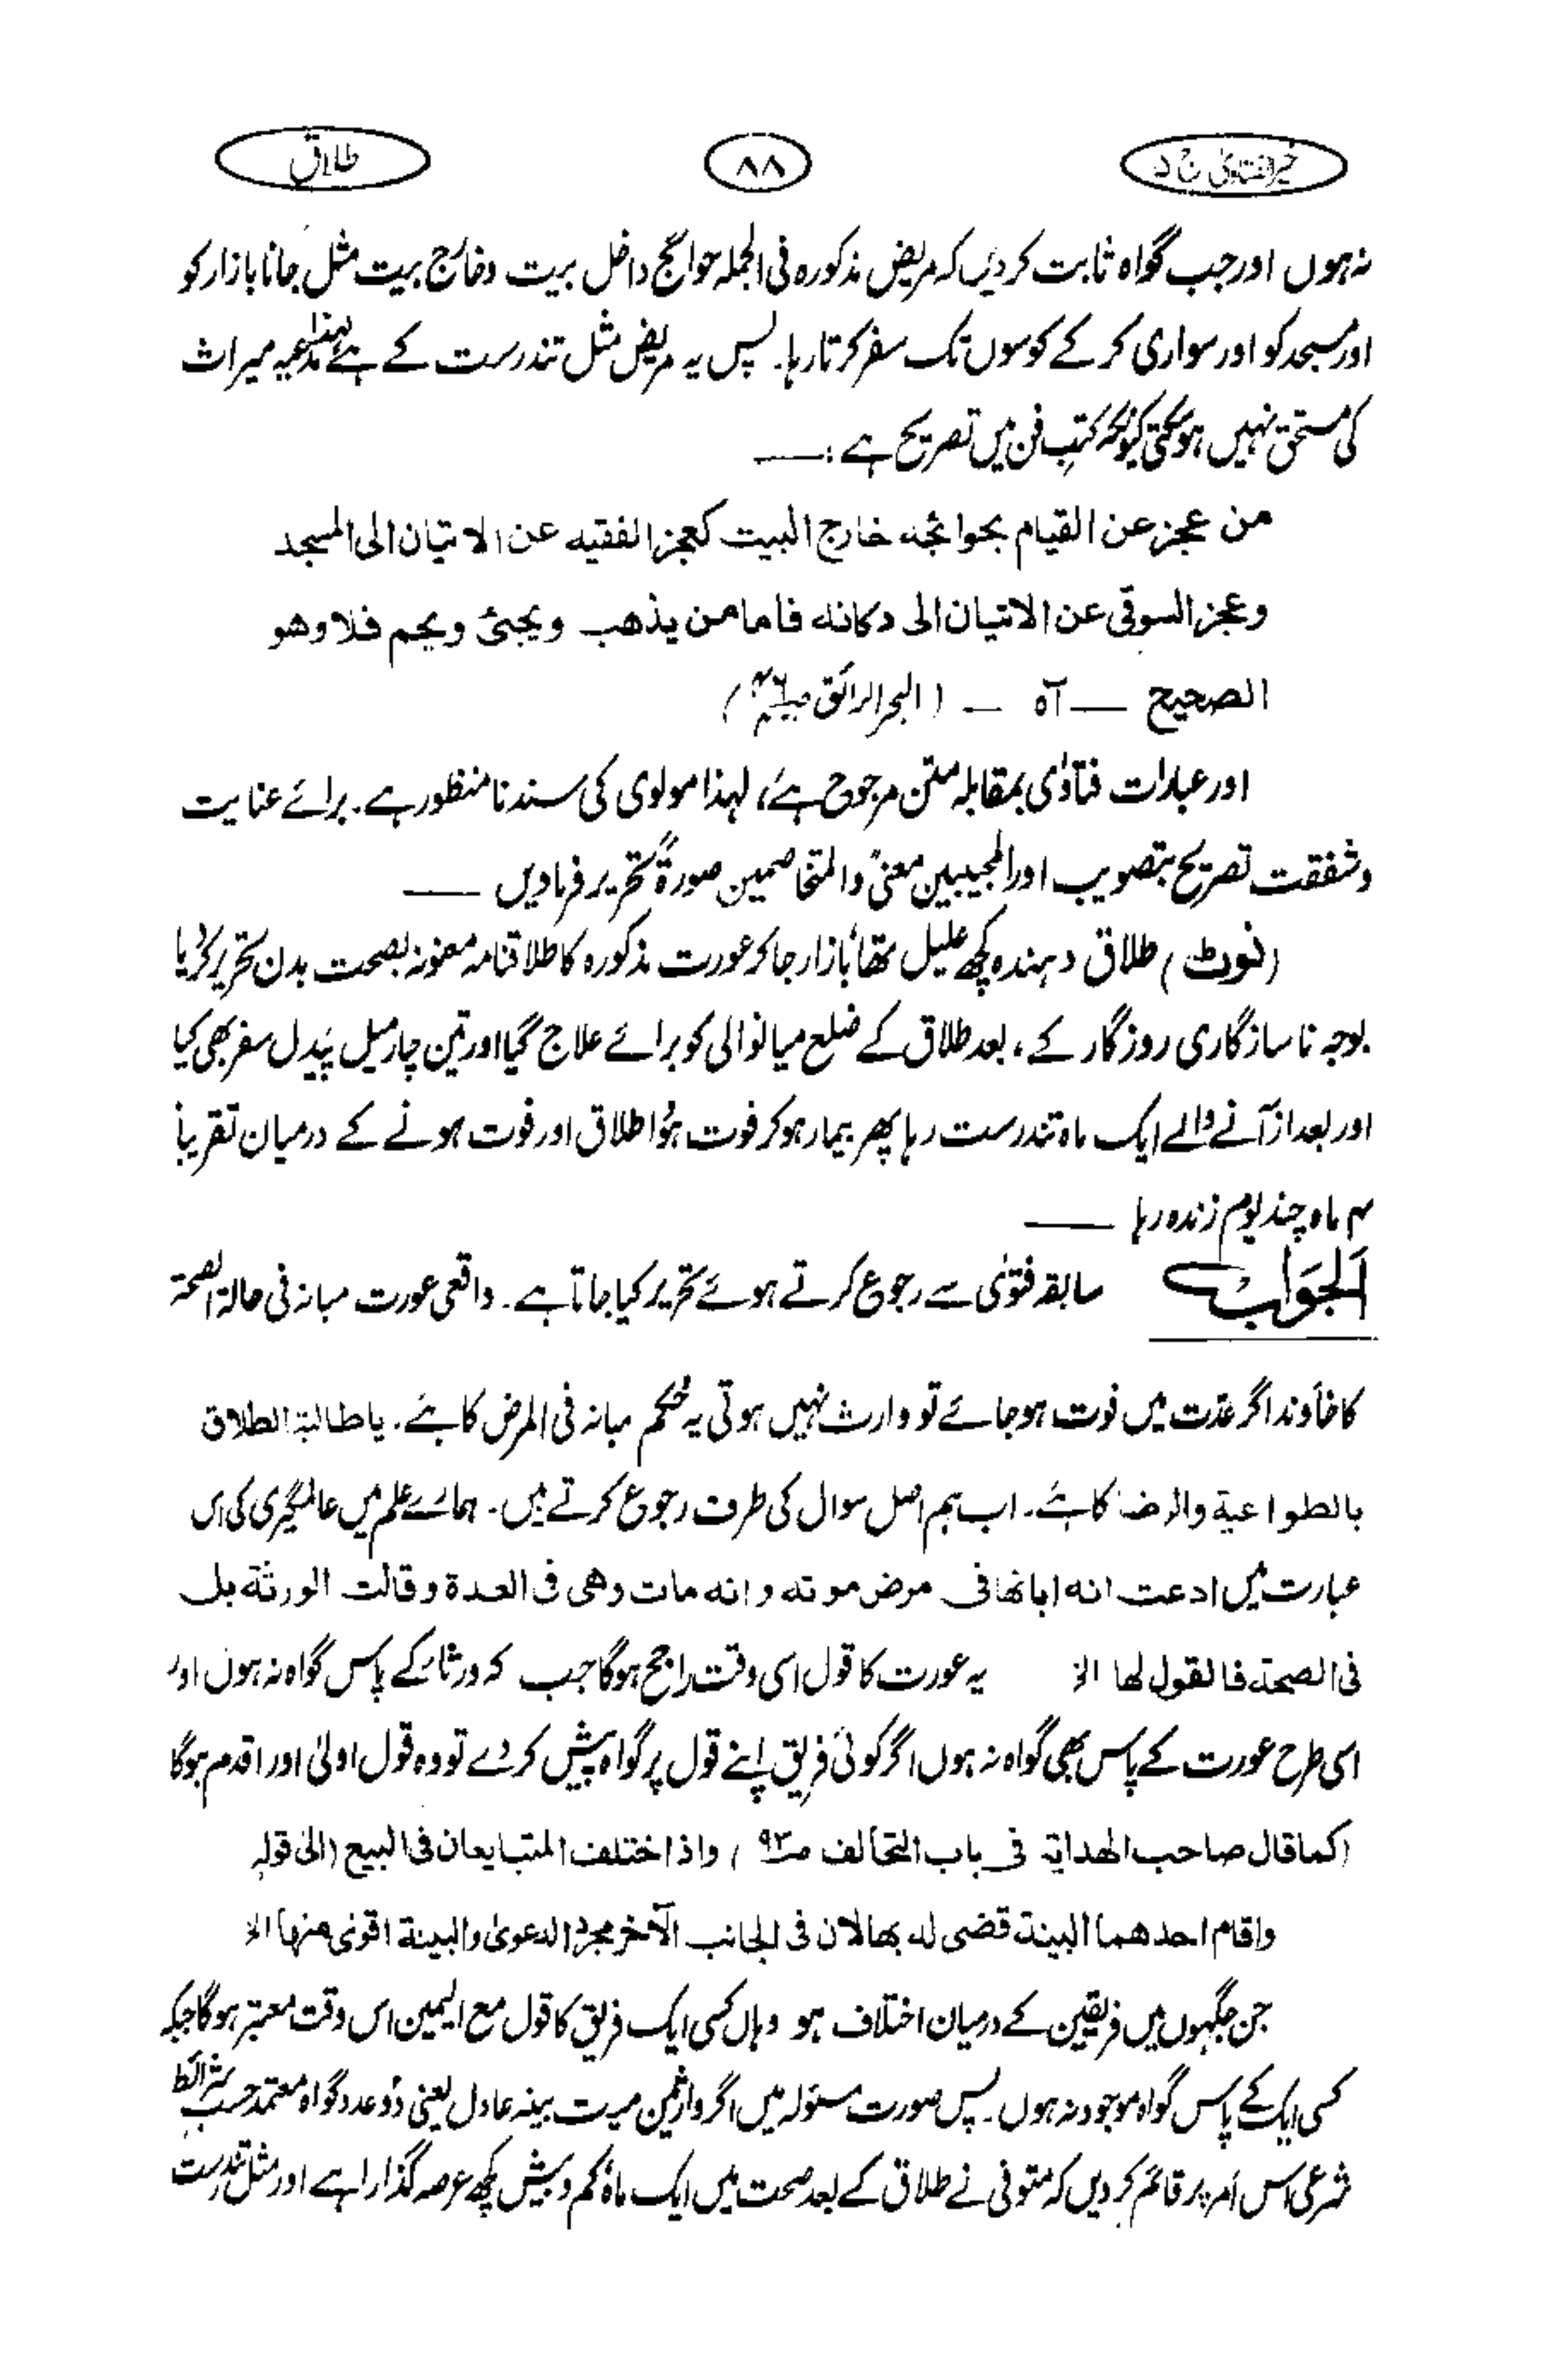 خیر الفتاویٰ ج ۵
۸۸
طلاق
نہ ہوں اور جب گواہ ثابت کردیں کہ مریض مذکورہ فی الجملہ حوائج داخل بیت و خارج بیت مثل جانا بازار کو
اور مسجد کو اور سواری کر کے کوسوں تک سفر کرتا رہا۔ پس یہ مریض مثل تندرست کے ہے لہٰذا مدعیہ میراث
کی مستحق نہیں ہوسکتی کیونکہ کتب فن میں تصریح ہے :—
من عجز عن القیام بحوائجہ خارج البیت کعجز الفقیہ عن الاتیان الی المسجد
وعجز السوقی عن الاتیان الی دکانہ فاما من یذھب ویجیٔ ویحم فلا وھو
الصحیح — آہ — (البحر الرائق
اور عبارات فتاوٰی بمقابلہ متن مرجوح ہے، لہذا مولوی کی سند نامنظور ہے۔ برائے عنایت
وشفقت تصریح بتصویب اور المجیبین معنیً والمتخاصمین صورۃً تحریر فرمادیں —
(نوٹ) طلاق دہندہ کچھ علیل تھا بازار جاکر عورت مذکورہ کا طلاقنامہ معنونہ بصحت بدن تحریر کرایا
بوجہ ناسازگاری روزگار کے، بعد طلاق کے ضلع میانوالی کو برائے علاج گیا اور تین چار میل پیدل سفر بھی کیا
اور بعد از آنے والے ایک ماہ تندرست رہا پھر بیمار ہوکر فوت ہوا طلاق اور فوت ہونے کے درمیان تقریباً
۴ ماہ چند یوم زندہ رہا —
الجواب سابقہ فتوٰی سے رجوع کرتے ہوئے تحریر کیا جاتا ہے۔ واقعی عورت مبانہ فی حالۃ الصحۃ
کا خاوند اگر عدت میں فوت ہوجائے تو وارث نہیں ہوتی یہ حکم مبانہ فی المرض کا ہے۔ یا طالبۃ الطلاق
بالطواعیۃ والرضا کا ہے۔ اب ہم اصل سوال کی طرف رجوع کرتے ہیں۔ ہمارے علم میں عالمگیری کی اس
عبارت میں ادعت انہ ابانھا فی مرض موتہ وانہ مات وھی فی العدۃ وقالت الورثۃ بل
فی الصحۃ فالقول لھا الخ یہ عورت کا قول اسی وقت راجح ہوگا جب کہ ورثاء کے پاس گواہ نہ ہوں اور
اسی طرح عورت کے پاس بھی گواہ نہ ہوں اگر کوئی فریق اپنے قول پر گواہ پیش کردے تو وہ قول اولیٰ اور اقدم ہوگا
(کما قال صاحب الھدایۃ فی باب التحالف ص۹۳) واذا اختلف المتبایعان فی البیع (الیٰ قولہ
واقام احدھما البینۃ قضی لہ بھا لان فی الجانب الآخر مجرد الدعویٰ والبینۃ اقویٰ منہا الخ
جن جگہوں میں فریقین کے درمیان اختلاف ہو وہاں کسی ایک فریق کا قول مع الیمین اس وقت معتبر ہوگا جبکہ
کسی ایک کے پاس گواہ موجود نہ ہوں۔ پس صورت مسئولہ میں اگر وارثین میت بینہ عادل یعنی دو عدد گواہ معتمد حسب شرائط
شرعی اس امر پر قائم کردیں کہ متوفی نے طلاق کے بعد صحت میں ایک ماہ کم و بیش کچھ عرصہ گذارا ہے اور مثل تندرست